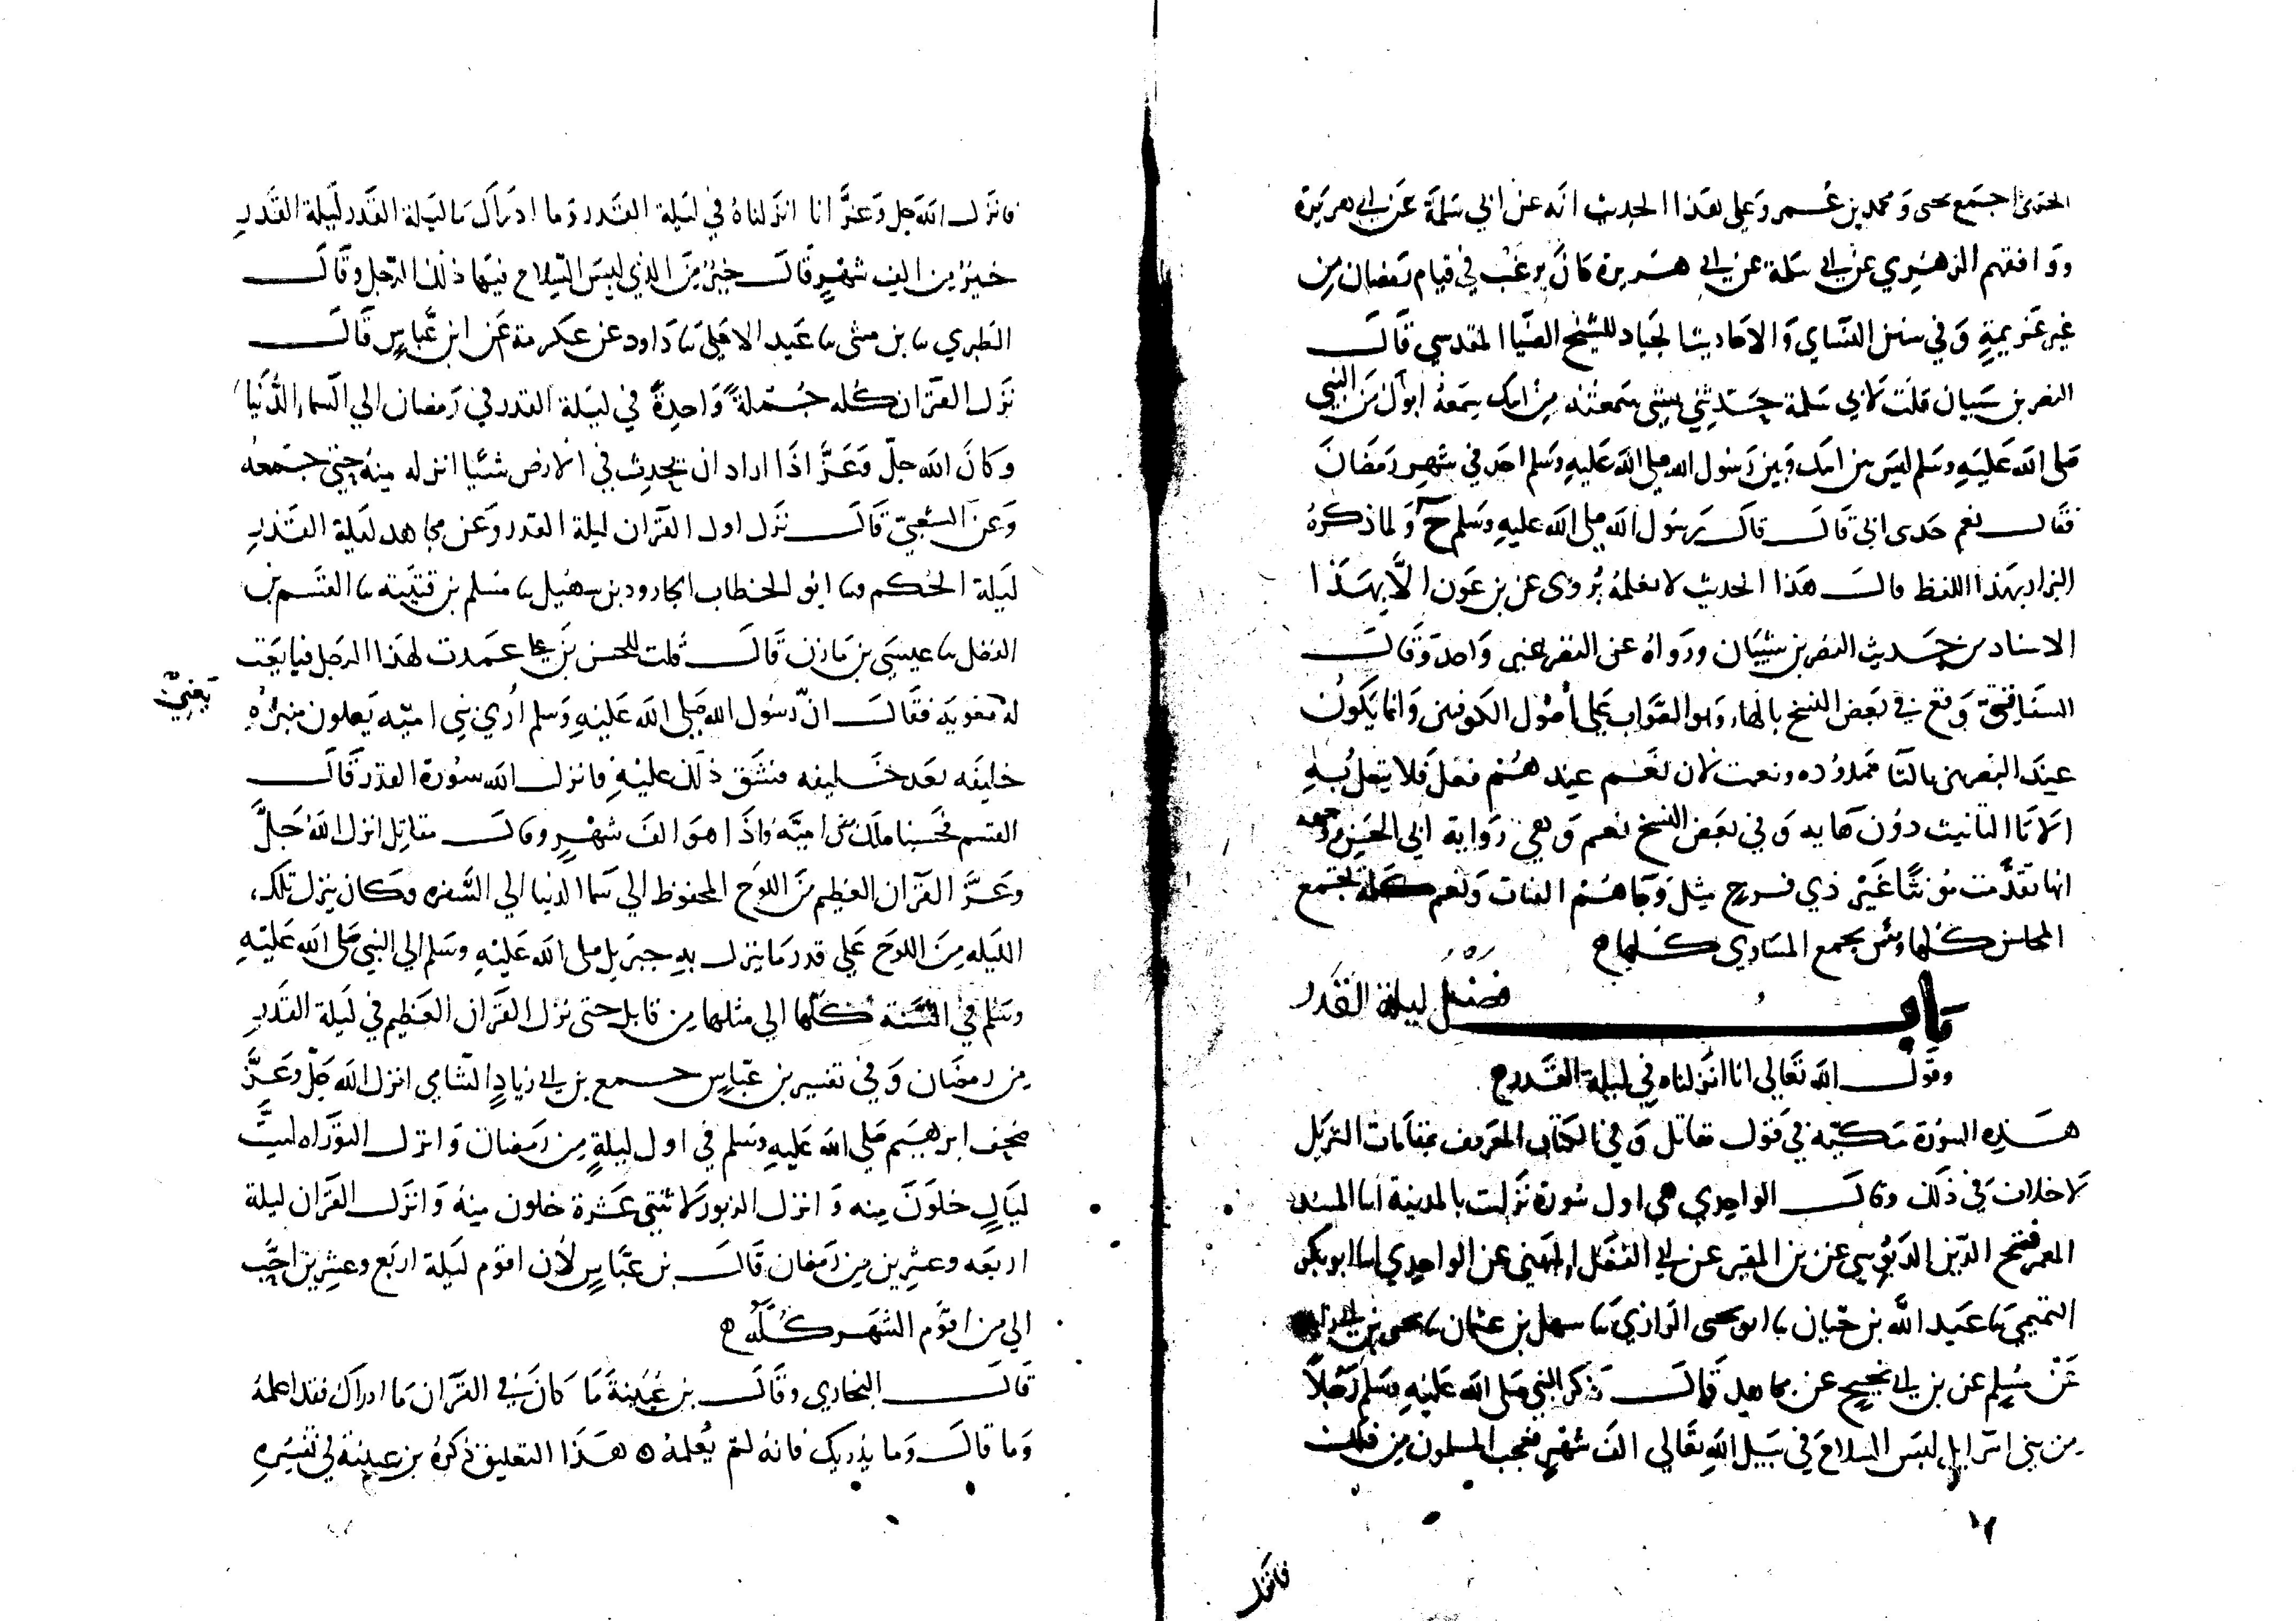 اجتمع يحيى ومحمد بن عمر وعلى هذا الحديث انه عن ابي سلمة عن ابي هريرة
ووافقهم الزهري عن ابي سلمة عن ابي هريرة كان يرغب في قيام رمضان من
غير عزيمة وفي سنن النساي والاحاديث الجياد للشيخ الضيا المقدسي قال
النضر بن شيبان قلت لابي سلمة حدثني بشي سمعته من ابيك سمعه ابوك من النبي
صلى الله عليه وسلم ليس بين ابيك وبين رسول الله صلى الله عليه وسلم احد في شهر رمضان
فقال نعم حدثني ابي قال قال رسول الله صلى الله عليه وسلم ح ولما ذكره
البزار بهذا اللفظ قال هذا الحديث لا نعلمه يروى عن بن عون الا بهذا
الاسناد من حديث النضر بن شيبان ورواه عن النضر غير واحد وقال
السفاقسي وقع في بعض النسخ بالهاء وهو الصواب على اصول الكوفيين وانما يكون
عند البصريين بالتا ممدوده ونعمت لان نعم عندهم فعل فلا يتصل به
الا تا التانيث دون هايه وفي بعض النسخ نعم وهي رواية ابي الحسن
انها تقدمت مؤنثا غير ذي فرج مثل وجاهم البنات ونعم كلمة تجمع
المحاسن كلها وبئس يجمع المساوي كلها ه
باب فضل ليلة القدر
وقول الله تعالي انا انزلناه في ليلة القدر ه
هذه السورة مكية في قول مقاتل وفي الكتاب المعروف بمقامات التنزيل
لا خلاف في ذلك وقال الواحدي هي اول سورة نزلت بالمدينة انا المسند
المعمر فتح الدين الدبوسي عن بن المقير عن ابي الفضل الميهني عن الواحدي انا ابو بكر
التميمي نا عبد الله بن حبان نا ابو يحيى الرازي نا سهل بن عثمان نا يحيى بن ابي
عن مسلم عن بن ابي نجيح عن مجاهد قال ذكر النبي صلى الله عليه وسلم رجلا
من بني اسرايل لبس السلاح في سبيل الله تعالي الف شهر فعجب المسلمون من ذلك
فانزل
فانزل الله جل وعز انا انزلناه في ليلة القدر وما ادراك ما ليلة القدر ليلة القدر
خير من الف شهر قال خير من الذي لبس السلاح فيها ذلك الرجل وقال
الطبري نا بن مثنى نا عبد الاعلى نا داود عن عكرمة عن ابن عباس قال
نزل القران كله جملة واحدة في ليلة القدر في رمضان الي السماء الدنيا
وكان الله جل وعز اذا اراد ان يحدث في الارض شئيا انزله منه حتى جمعه
وعن الشعبي قال نزل اول القران ليلة القدر وعن مجاهد ليلة القدر
ليلة الحكم ونا ابو الخطاب الجارود بن سهيل نا مسلم بن قتيبه نا القسم بن
الفضل نا عيسى بن مازن قال قلت للحسن بن علي عمدت لهذا الرجل فبايعت
له معويه فقال ان رسول الله صلى الله عليه وسلم اري بني اميه يعلون منبره
يعني
خليفه بعد خليفه فشق ذلك عليه فانزل الله سورة القدر قال
القسم فحسبنا ملك بني اميه واذا هو الف شهر وقال مقاتل انزل الله جل
وعز القران العظيم من اللوح المحفوظ الي سما الدنيا الي السفره وكان ينزل تلك
الليله من اللوح علي قدر ما ينزل به جبريل صلى الله عليه وسلم الي النبي صلى الله عليه
وسلم في السنة كلها الي مثلها من قابل حتى نزل القران العظيم في ليلة القدر
من رمضان وفي تفسير بن عباس جمع بن ابي زياد الشامي انزل الله جل وعز
صحف ابرهيم صلى الله عليه وسلم في اول ليلة من رمضان وانزل التوراه لست
ليال خلون منه وانزل الزبور لاثنتي عشرة خلون منه وانزل القران ليلة
اربعه وعشرين من رمضان قال بن عباس لان اقوم ليلة اربع وعشرين احب
الي من اقوم الشهر كله ه
قال البخاري وقال بن عيينة ما كان في القران ما ادراك فقد اعلمه
وما قال وما يدريك فانه لم يعلمه ه هذا التعليق ذكره بن عيينة في تفسيره